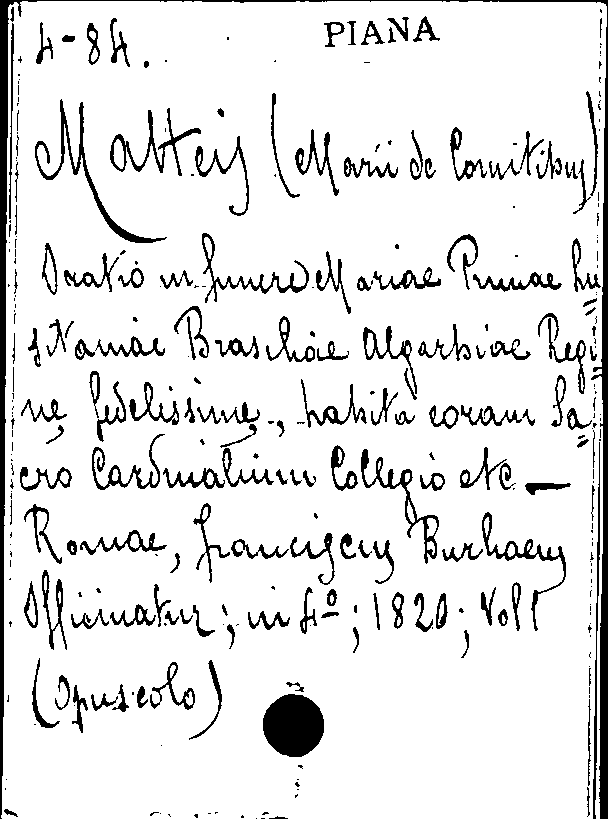 4-84.
PIANA
Matteis (Marii de Comitibus)
Oratio in funere Mariae Primae Lu=
sitaniae Brasiliae Algarbiae Regi=
nę fidelissimę, habita coram Sa=
cro Cardinalium Collegio etc —
Romae, Franciscus Burliaeus
Officinatur; in 4º; 1820; Vol 1
(Opuscolo)